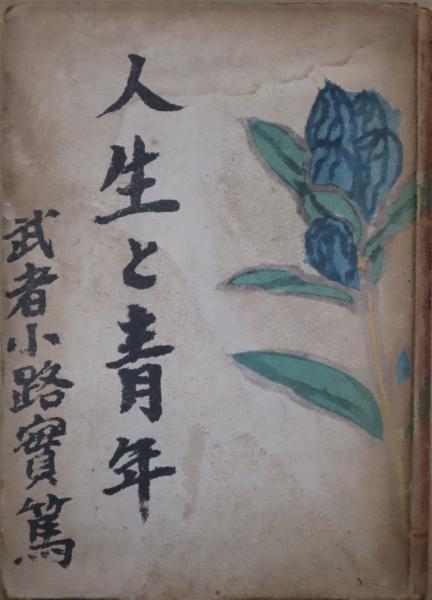 人生と青年
武者小路實篤